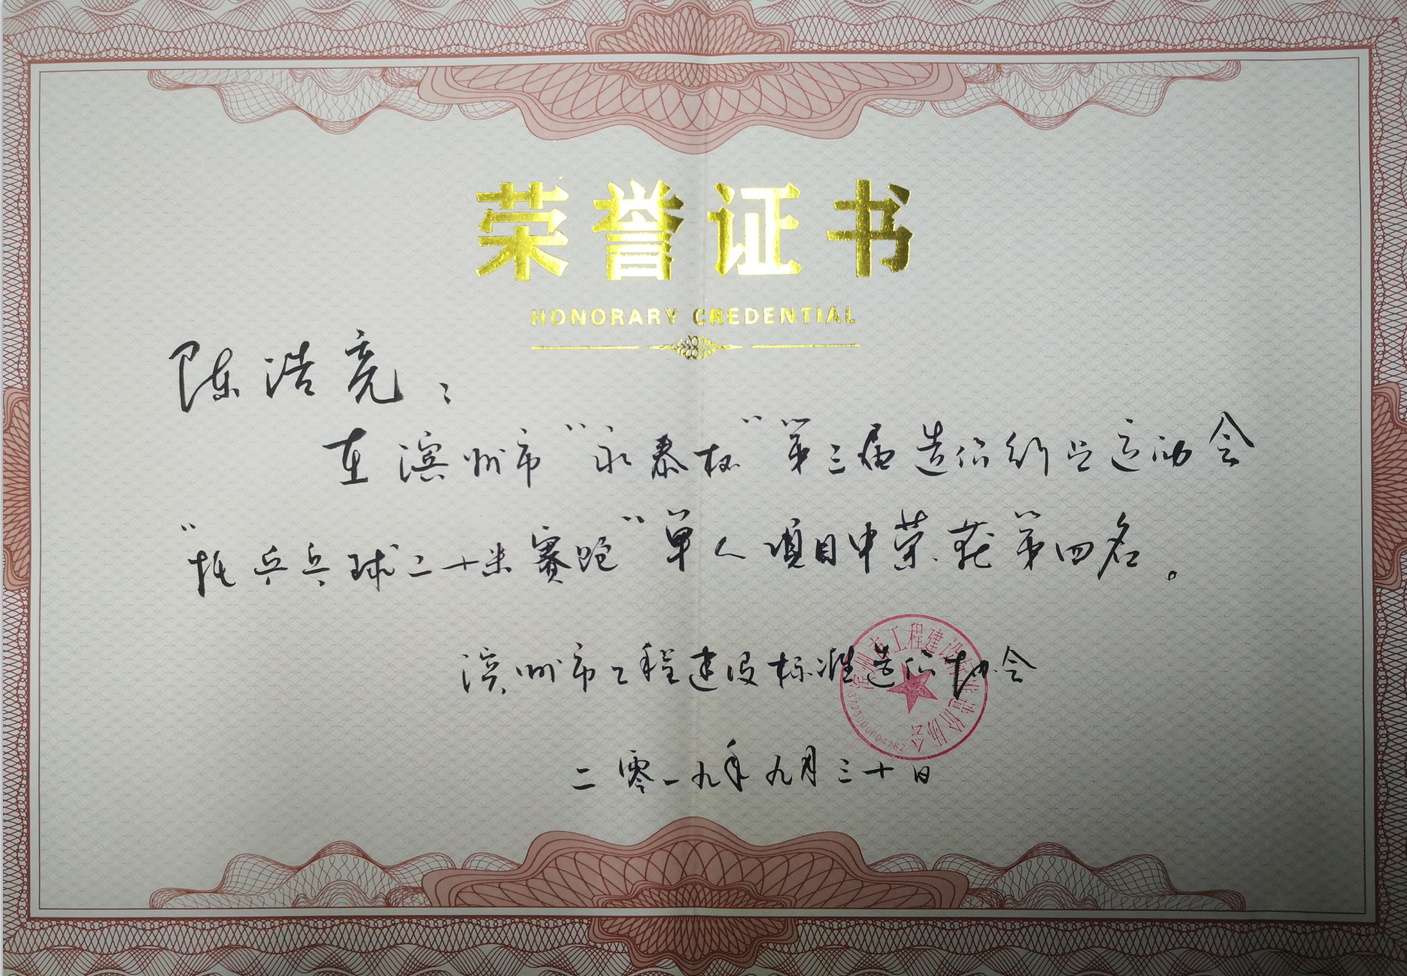 荣誉证书
HONORARY CREDENTIAL
陈浩亮：
在滨州市“永泰杯”第三届造价行业运动会
“托乒乓球二十米赛跑”单人项目中荣获第四名。
滨州市工程建设标准造价协会
二零一九年九月三十日
滨州市工程建设标准造价协会